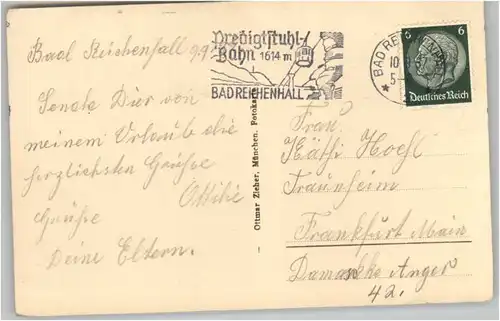 Predigtstuhl-
Bahn 1614 m
BAD REICHENHALL
BAD REI
10
5-
6 6
Deutsches Reich
Bad Reichenhall 9.9.
Sende Dir von
meinem Urlaube die
herzlichsten Grüße
Grüße
Deine Eltern.
Ottmar Zieher, München. Fotokarte
Frau
Käthi Hoefl
Traunheim
Frankfurt Main
Anger
42.